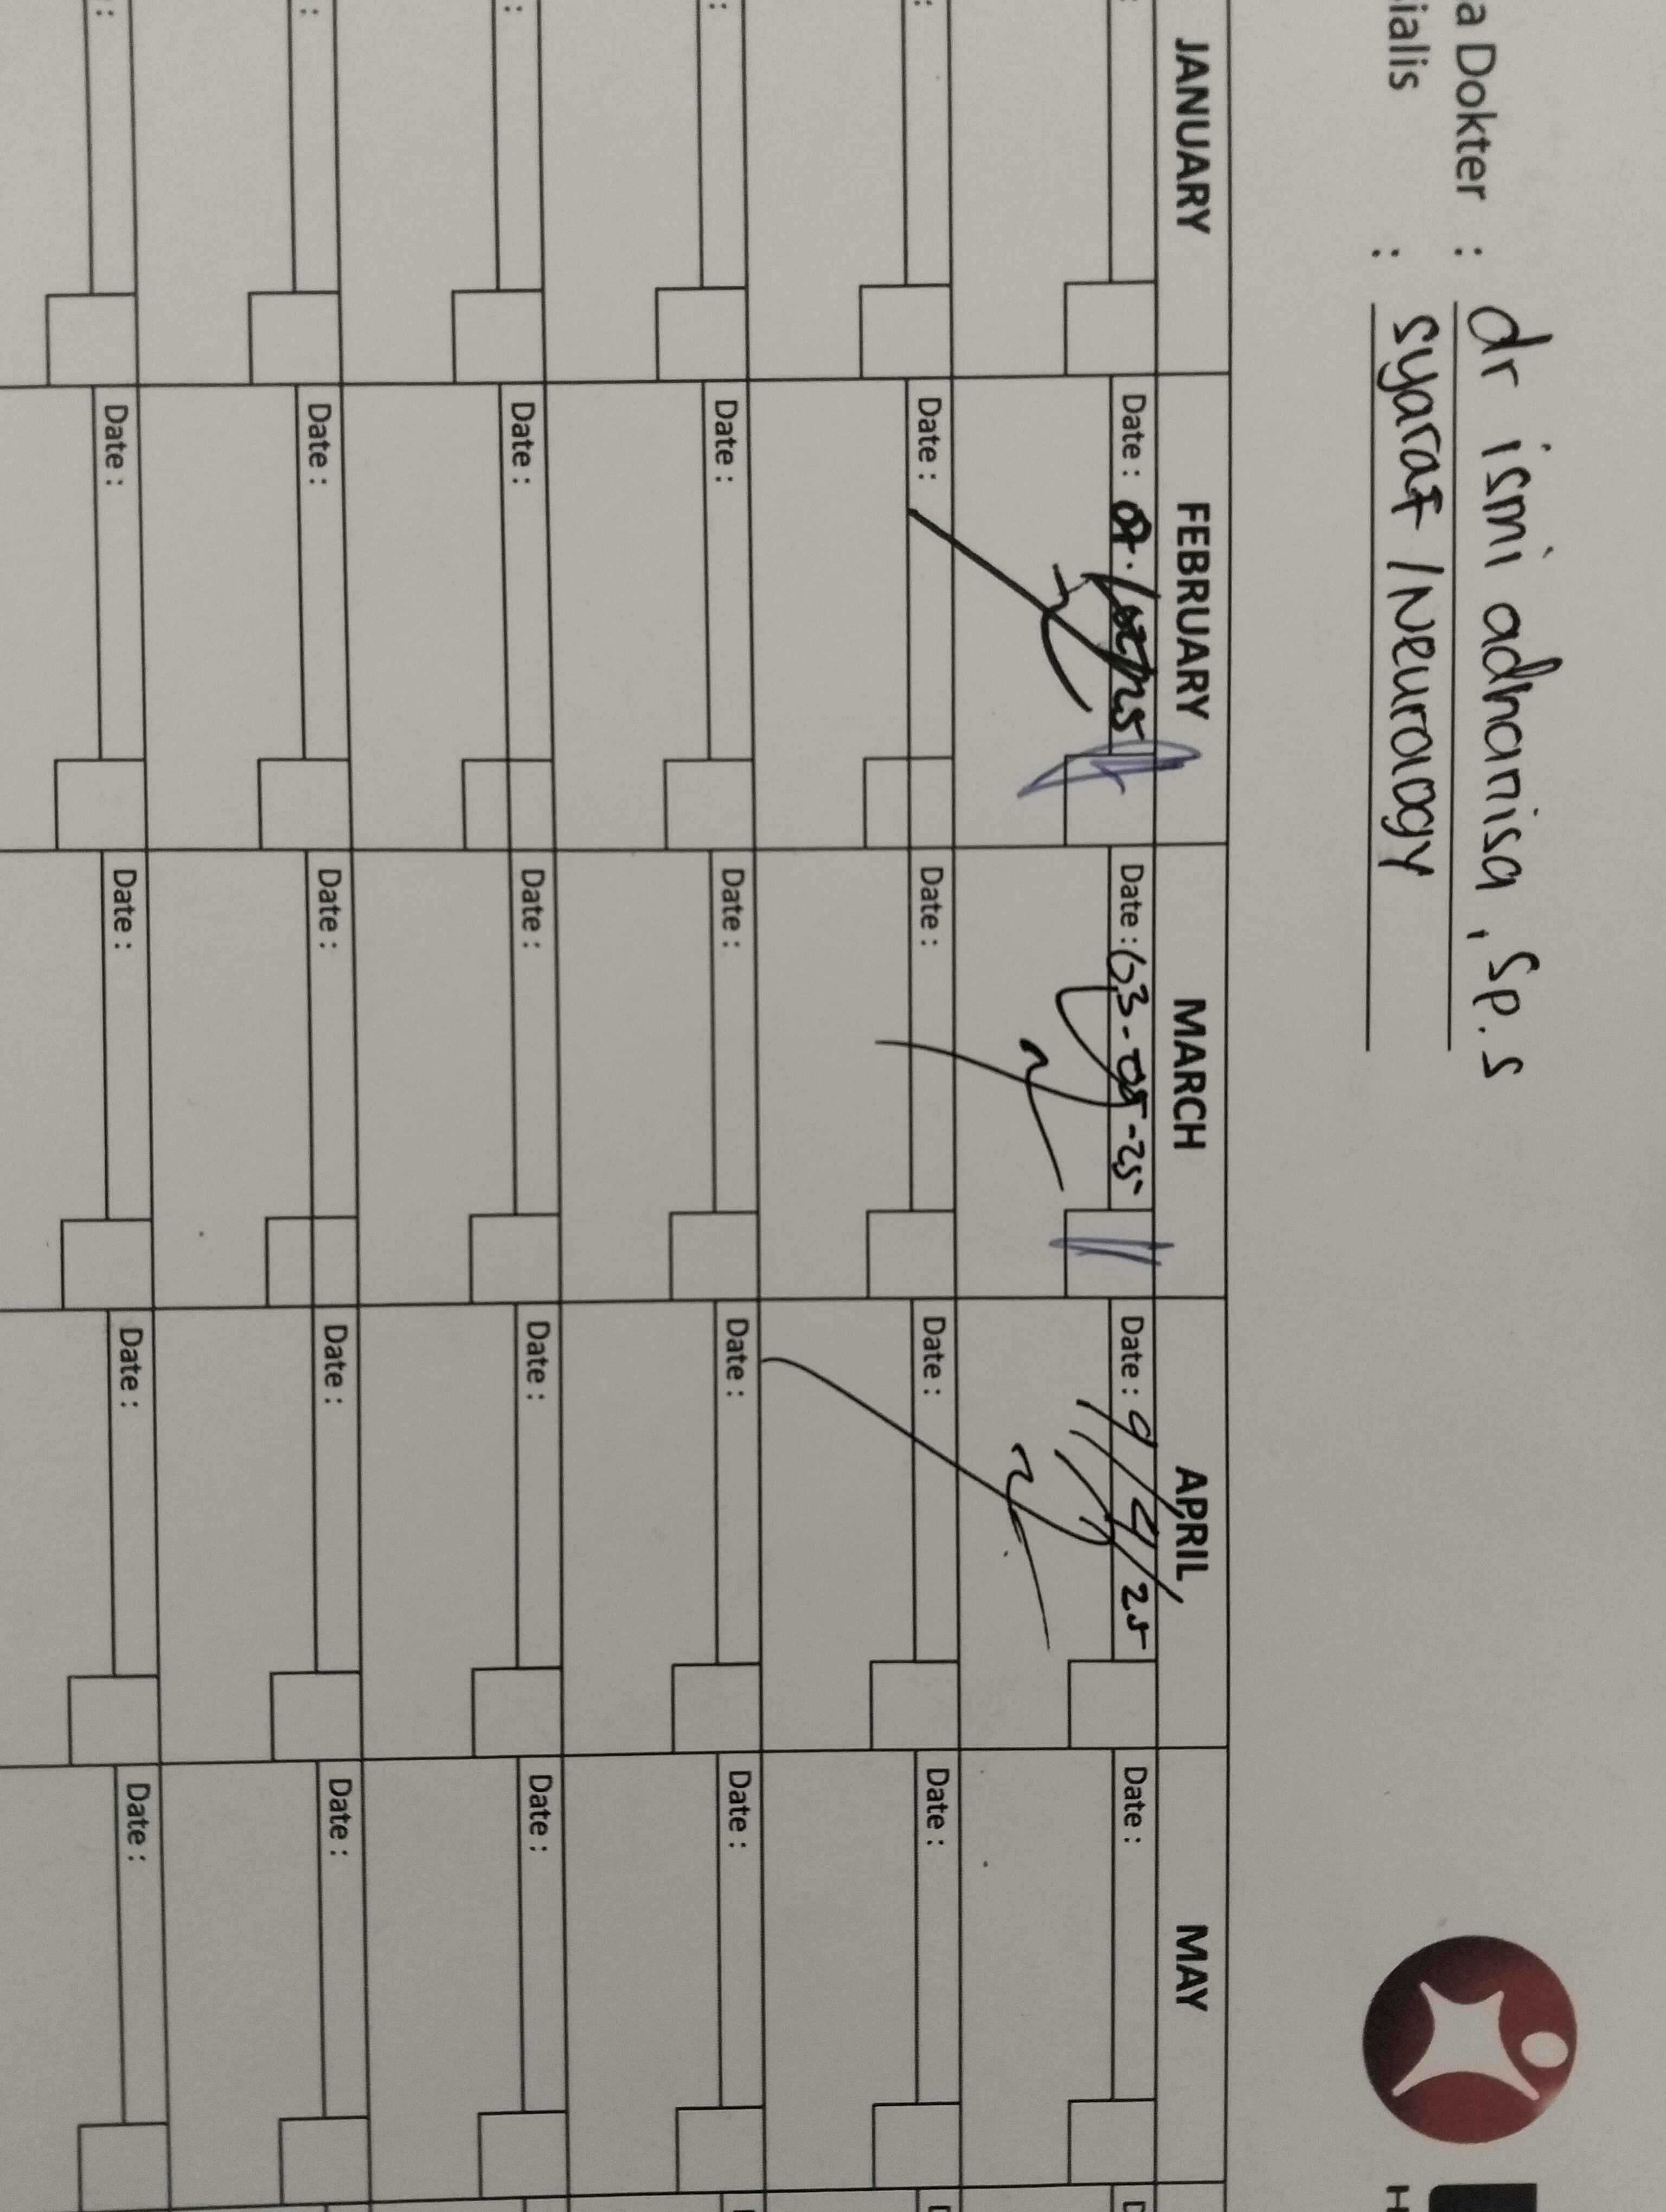 a Dokter : dr ismi adhanisa, Sp.S
ialis : syaraf / Neurology
JANUARY FEBRUARY MARCH APRIL MAY
: Date : Date : Date : 9/4/25 Date : D
: Date : Date : Date : Date : D
: Date : Date : Date : Date :
: Date : Date : Date : Date :
: Date : Date : Date : Date :
: Date : Date : Date : Date :
H